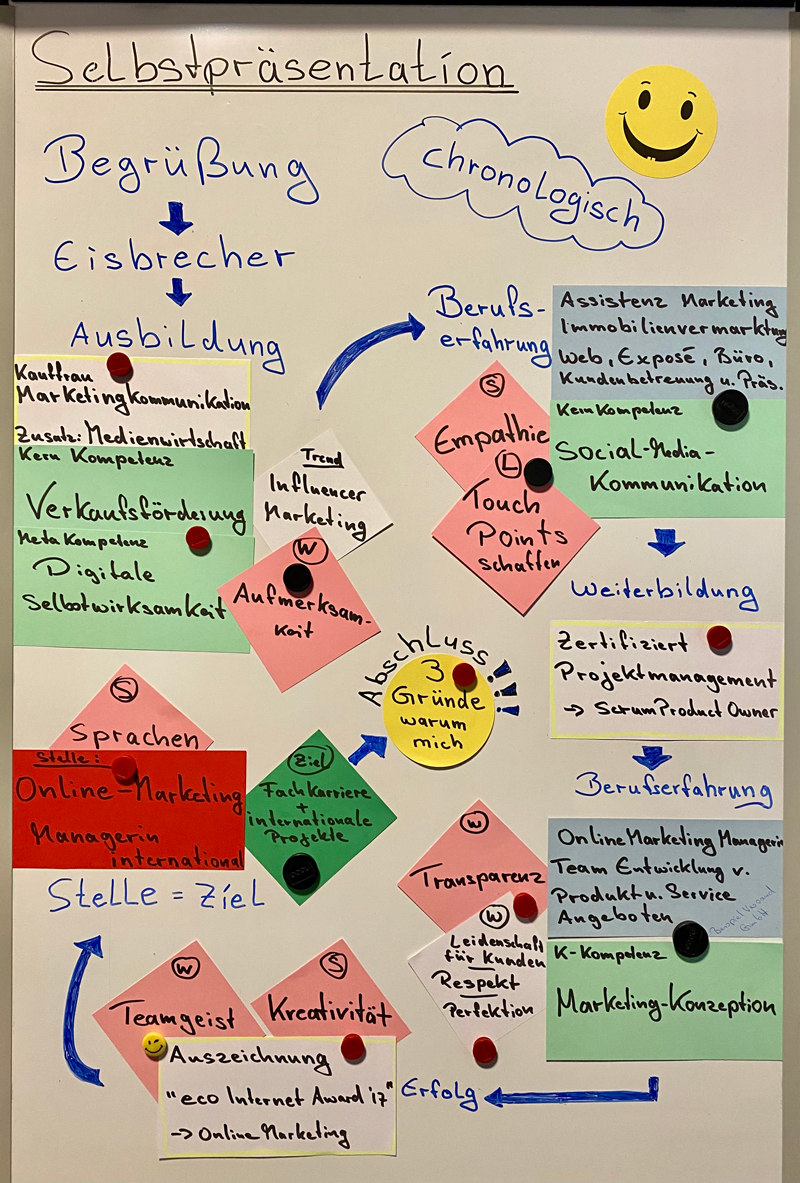 Selbstpräsentation
chronologisch
Begrüßung
Eisbrecher
Ausbildung
Kauffrau
Marketingkommunikation
Zusatz: Medienwirtschaft
Kern Kompetenz
Verkaufsförderung
Meta Kompetenz
Digitale
Selbstwirksamkeit
Trend
Influencer
Marketing
W
Aufmerksam-
keit
Berufs-
erfahrung
Assistenz Marketing
Immobilienvermarktung
Web, Exposé, Büro,
Kundenbetreuung u. Präs.
Kern Kompetenz
Social-Media-
Kommunikation
S
Empathie
L
Touch
Points
schaffen
Weiterbildung
Zertifiziert
Projektmanagement
→ Scrum Product Owner
Berufserfahrung
Online Marketing Managerin
Team Entwicklung v.
Produkt u. Service
Angeboten
GmbH
K-Kompetenz
Marketing-Konzeption
W
Transparenz
W
Leidenschaft
für Kunden
Respekt
Perfektion
Erfolg
W
Teamgeist
S
Kreativität
Auszeichnung
"eco Internet Award '17"
→ Online Marketing
Stelle = Ziel
S
Sprachen
Stelle:
Online-Marketing
Managerin
international
Ziel
Fachkarriere
+
internationale
Projekte
Abschluss!!!
3
Gründe
warum
mich